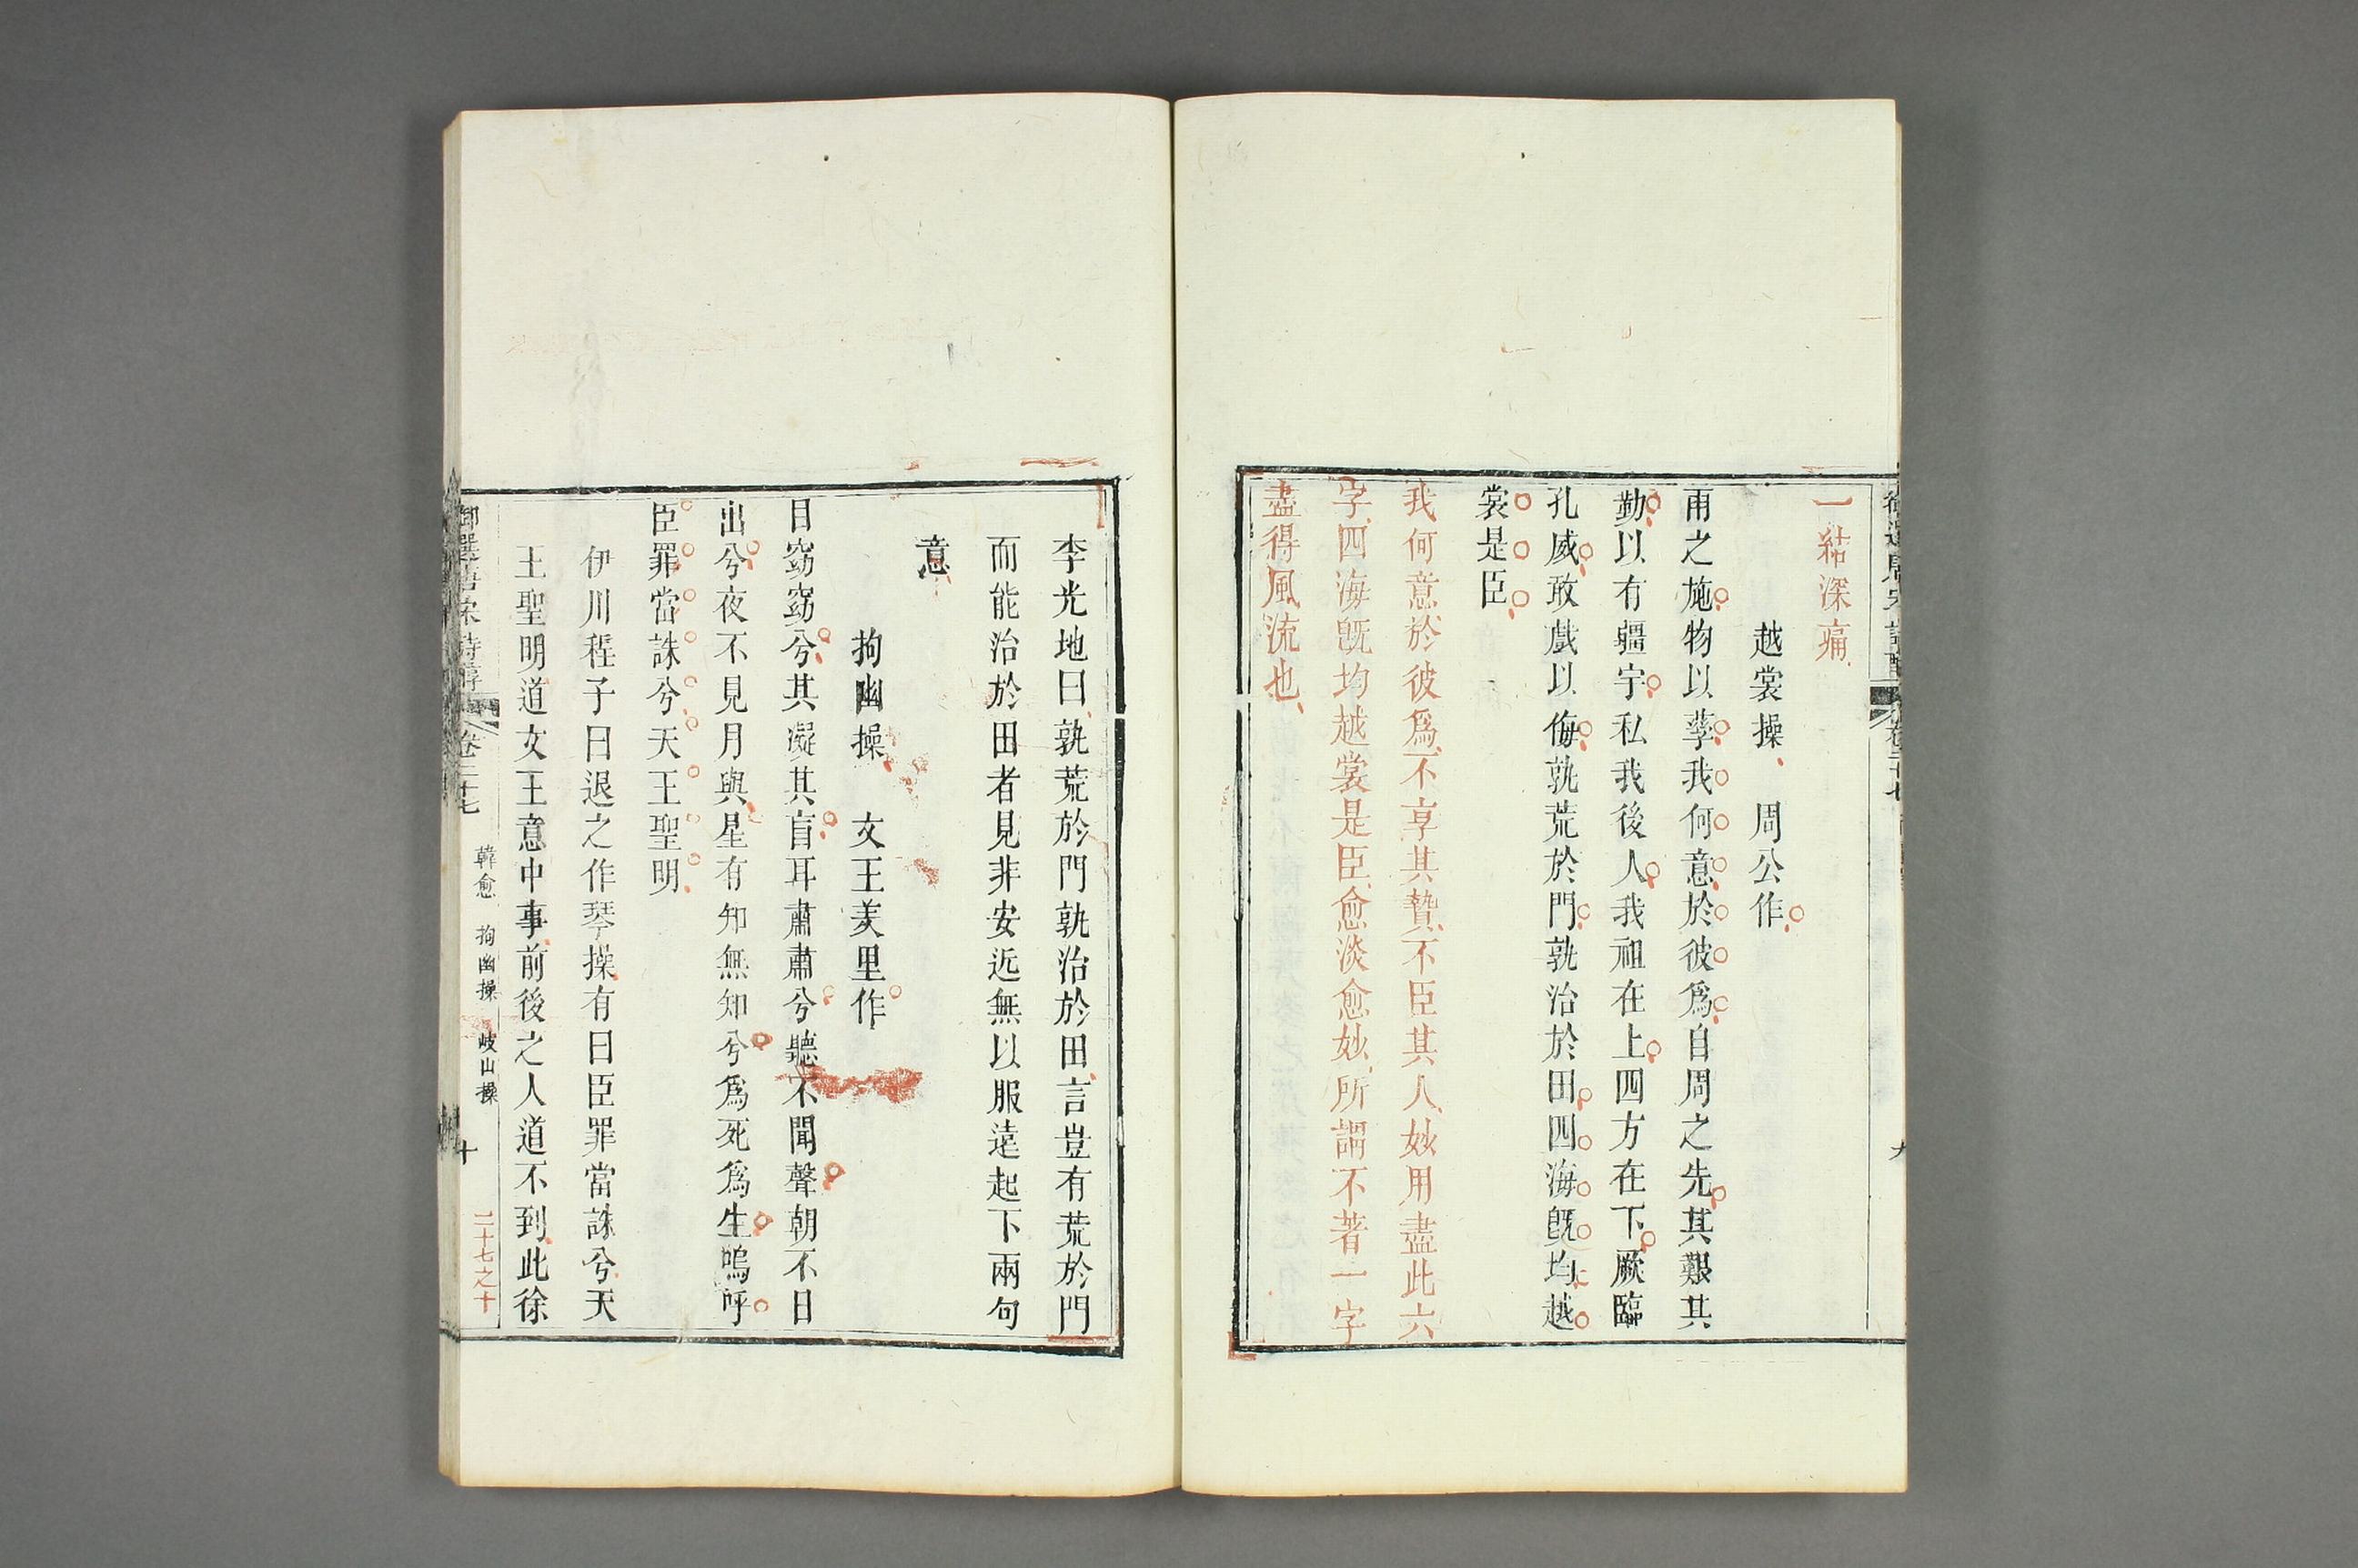 一結深痛
越裳操　周公作
雨之施物以孳我何意於彼爲自周之先其艱其
勤以有疆宇私我後人我祖在上四方在下厥臨
孔威敢戲以侮孰荒於門孰治於田四海旣均越
裳是臣
我何意於彼爲不享其贄不臣其人妙用盡此六
字四海旣均越裳是臣愈淡愈妙所謂不著一字
盡得風流也
李光地曰孰荒於門孰治於田言豈有荒於門
而能治於田者見非安近無以服遠起下兩句
意
拘幽操　文王羑里作
目窈窈兮其凝其盲耳肅肅兮聽不聞聲朝不日
出兮夜不見月與星有知無知兮爲死爲生嗚呼
臣罪當誅兮天王聖明
伊川程子曰退之作琴操有曰臣罪當誅兮天
王聖明道文王意中事前後之人道不到此徐
御選唐宋詩醇　卷二十七　韓愈　拘幽操　岐山操　十　二十七之十